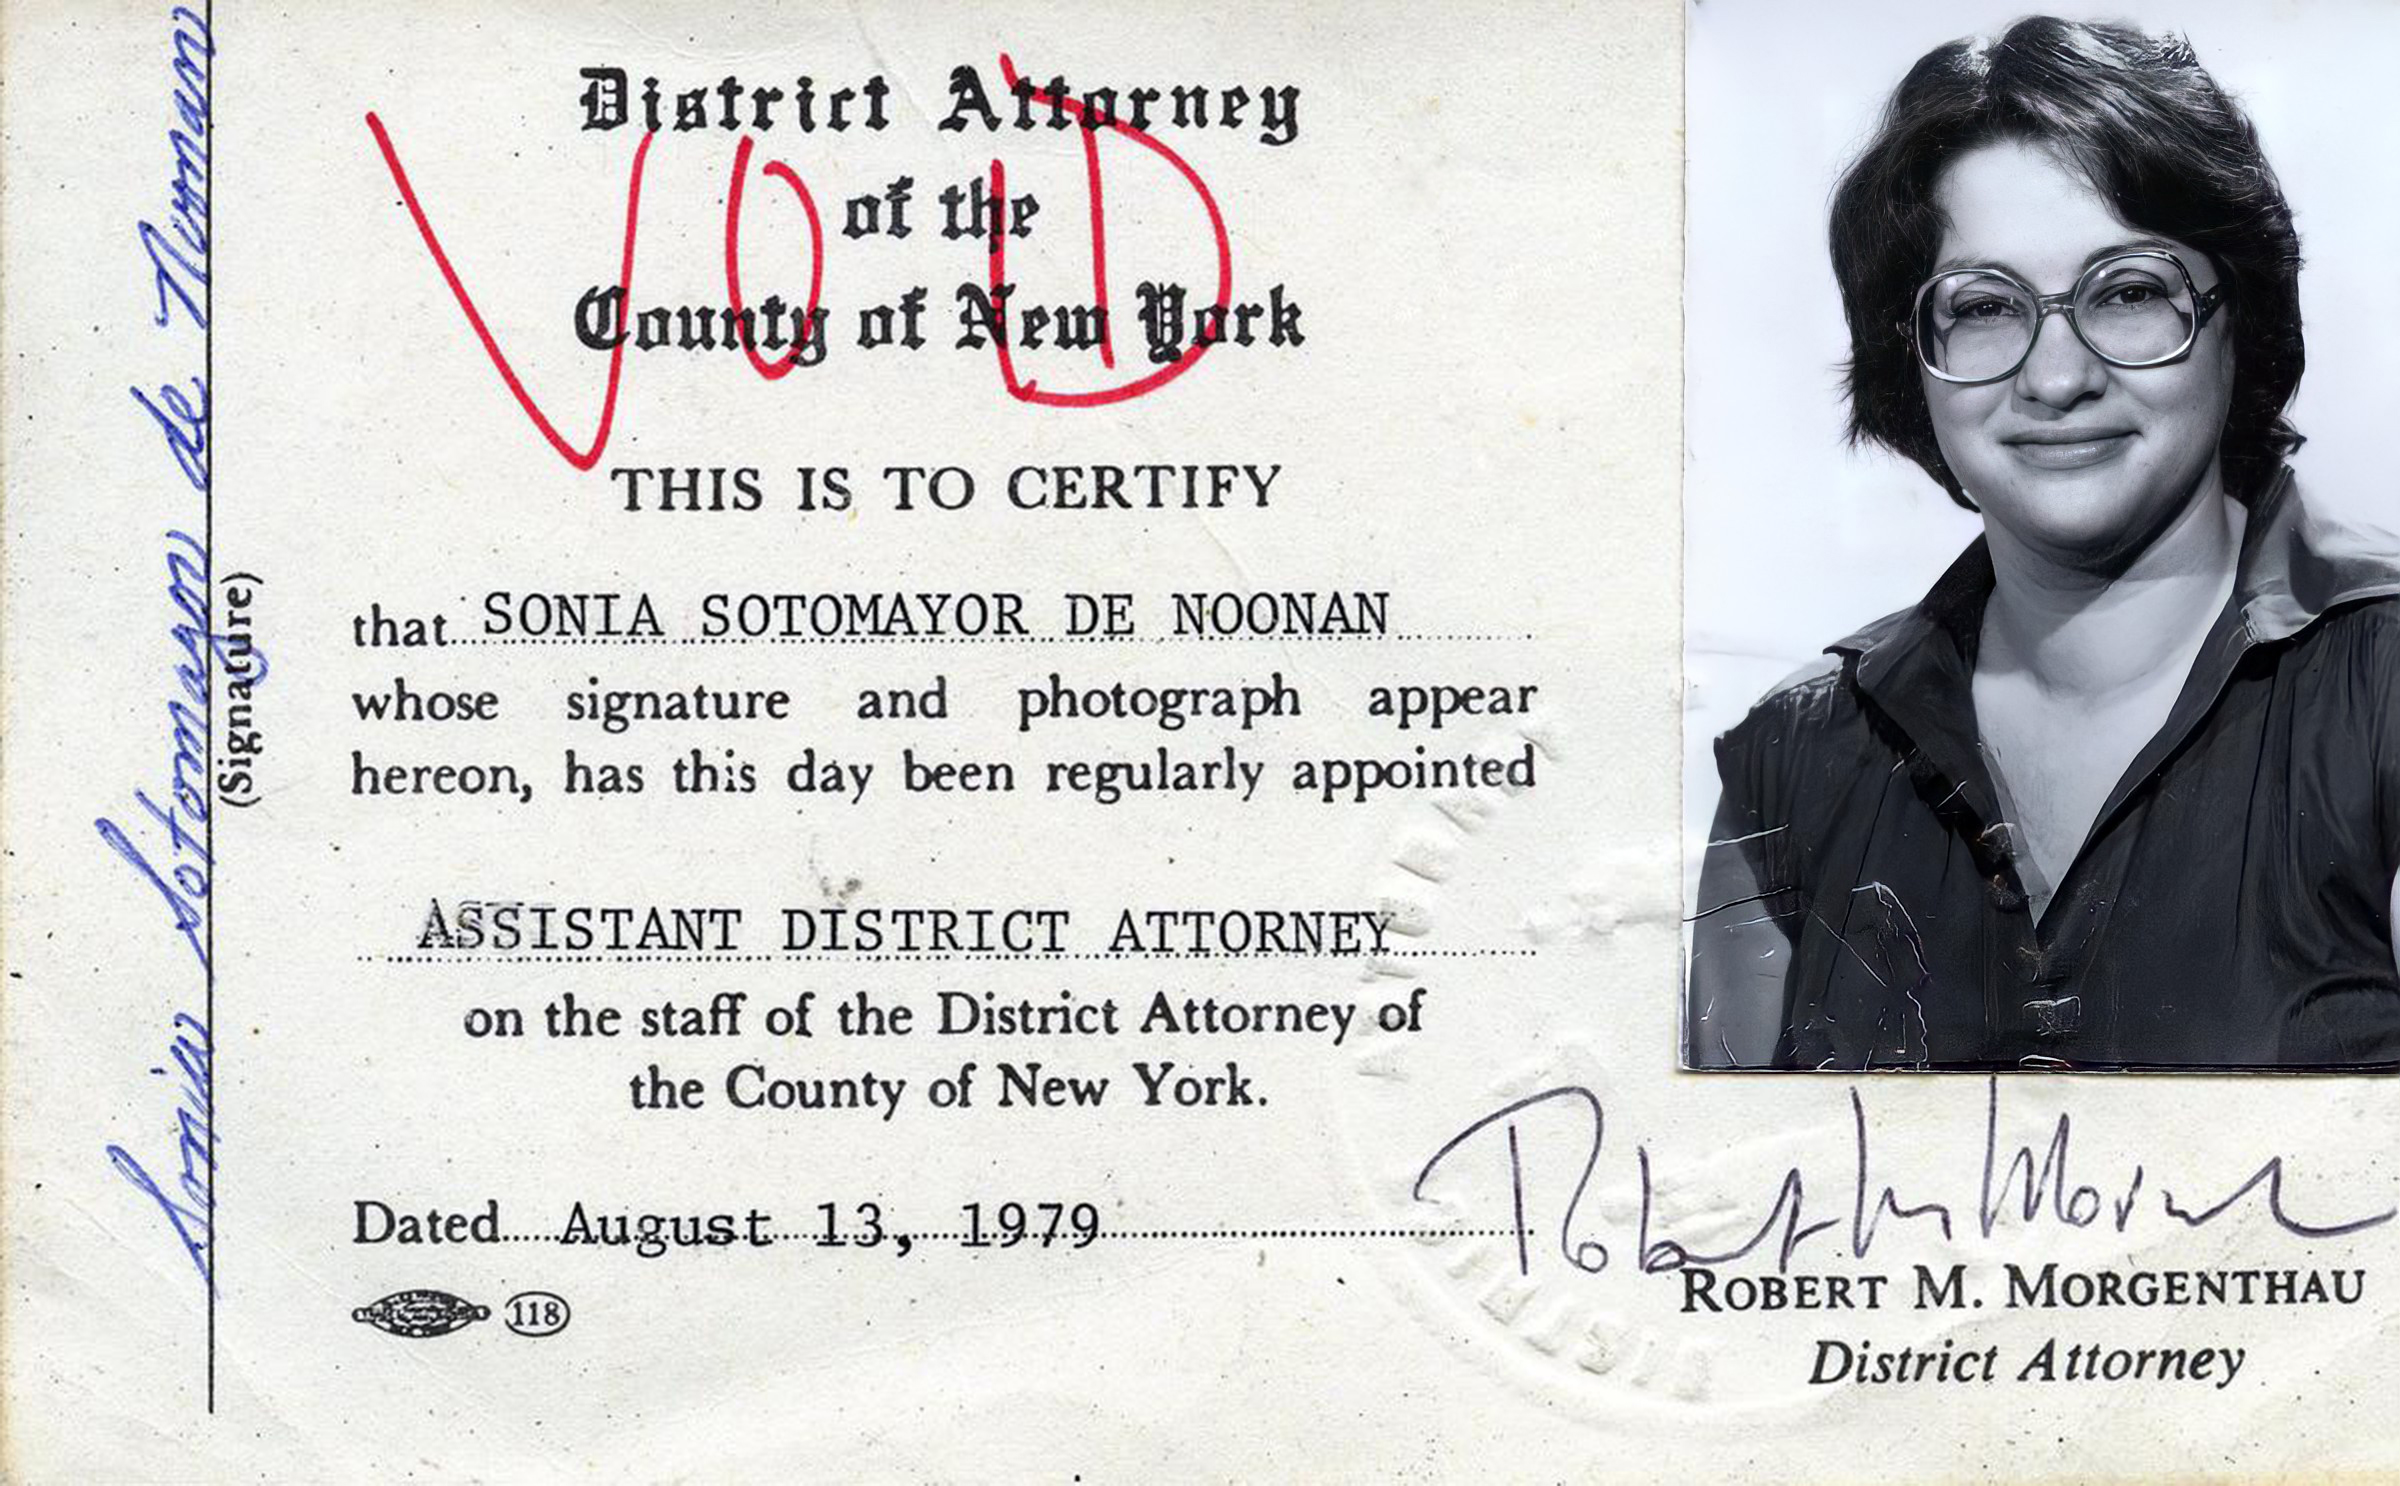 District Attorney
of the
County of New York
VOID
THIS IS TO CERTIFY
that SONIA SOTOMAYOR DE NOONAN
whose signature and photograph appear
hereon, has this day been regularly appointed
ASSISTANT DISTRICT ATTORNEY
on the staff of the District Attorney of
the County of New York.
Dated August 13, 1979
118
Robert M. Morgenthau
ROBERT M. MORGENTHAU
District Attorney
Sonia Sotomayor de Noonan
(Signature)